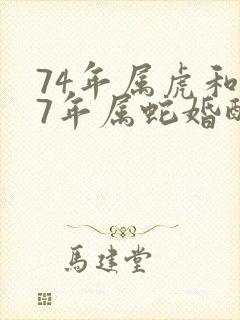 74年属虎和
7年属蛇婚配
馬建堂